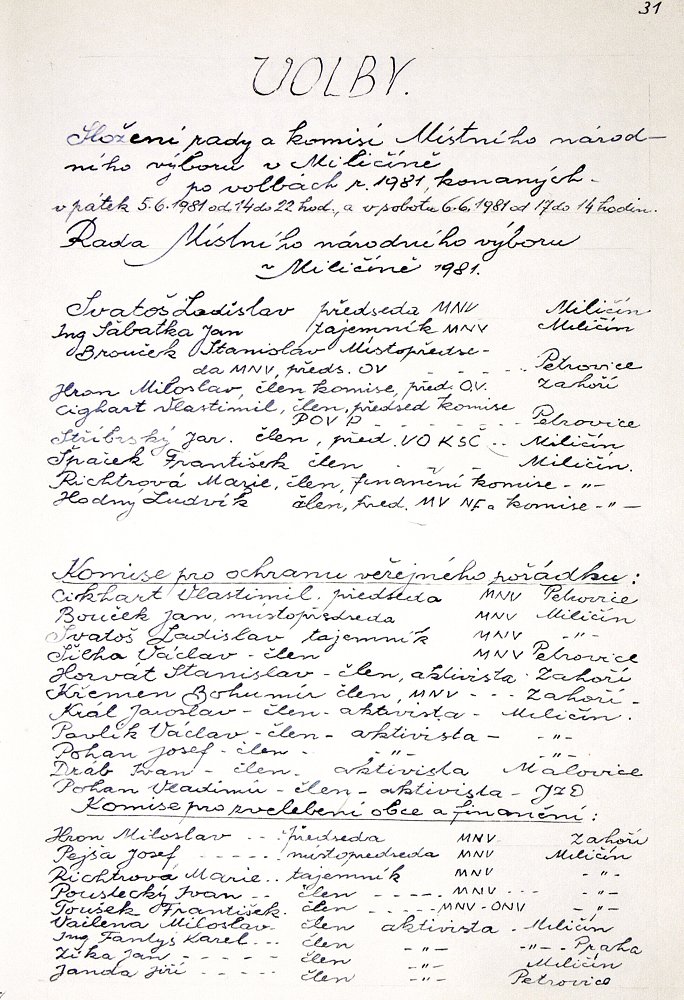 31
VOLBY.
Složení rady a komisí Místního národ-
ního výboru v Miličíně
po volbách r. 1981, konaných
v pátek 5.6.1981 od 14 do 22 hod., a v sobotu 6.6.1981 od 17 do 14 hodin.
Rada Místního národného výboru
v Miličíně 1981.
Svatoš Ladislav předseda MNV Miličín
Ing Sábatka Jan tajemník MNV Miličín
Brouček Stanislav Místopředse-
da MNV, předs. OV - - - - Petrovice
Hron Miloslav, člen komise, před. O.V. Záhoří
Cighart Vlastimil, člen, předsed komise
POV P - - - - - - Petrovice
Stříbrský Jar. člen, před. VO KSČ - - Miličín
Špaček František člen - - - - Miličín.
Richtrová Marie, člen, finanční komise - "-
Hodný Ludvík člen, před. MV NF a komise - " -
Komise pro ochranu veřejného pořádku:
Cikhart Vlastimil. předseda MNV Petrovice
Bouček Jan, místopředseda MNV Miličín
Svatoš Ladislav tajemník MNV -"-
Šilha Václav - člen MNV Petrovice
Horvát Stanislav - člen, aktivista - Záhoří
Křemen Bohumír člen, MNV - - - Záhoří -
Král Jaroslav - člen - aktivista - Miličín.
Pavlík Václav - člen - aktivista - -"-
Pohan Josef - člen - -"- -"-
Dráb Ivan - člen - aktivista Malovice
Pohan Vladimír - člen - aktivista - JZD
Komise pro zvelebení obce a finanční:
Hron Miloslav - - - předseda MNV. Záhoří
Pejša Josef - - - - - místopředseda MNV Miličín
Richtrová Marie.. tajemník MNV -"-
Poustecký Ivan - - člen - - - - MNV - - - -"-
Toušek František. člen - - - - MNV-ONV -"-
Vailena Miloslav. člen aktivista. Miličín
Ing Fantys Karel... člen -"- -"- Praha
Zíka Jan - - - - - člen -"- Miličín
Janda Jiří - - - - - člen -"- Petrovice